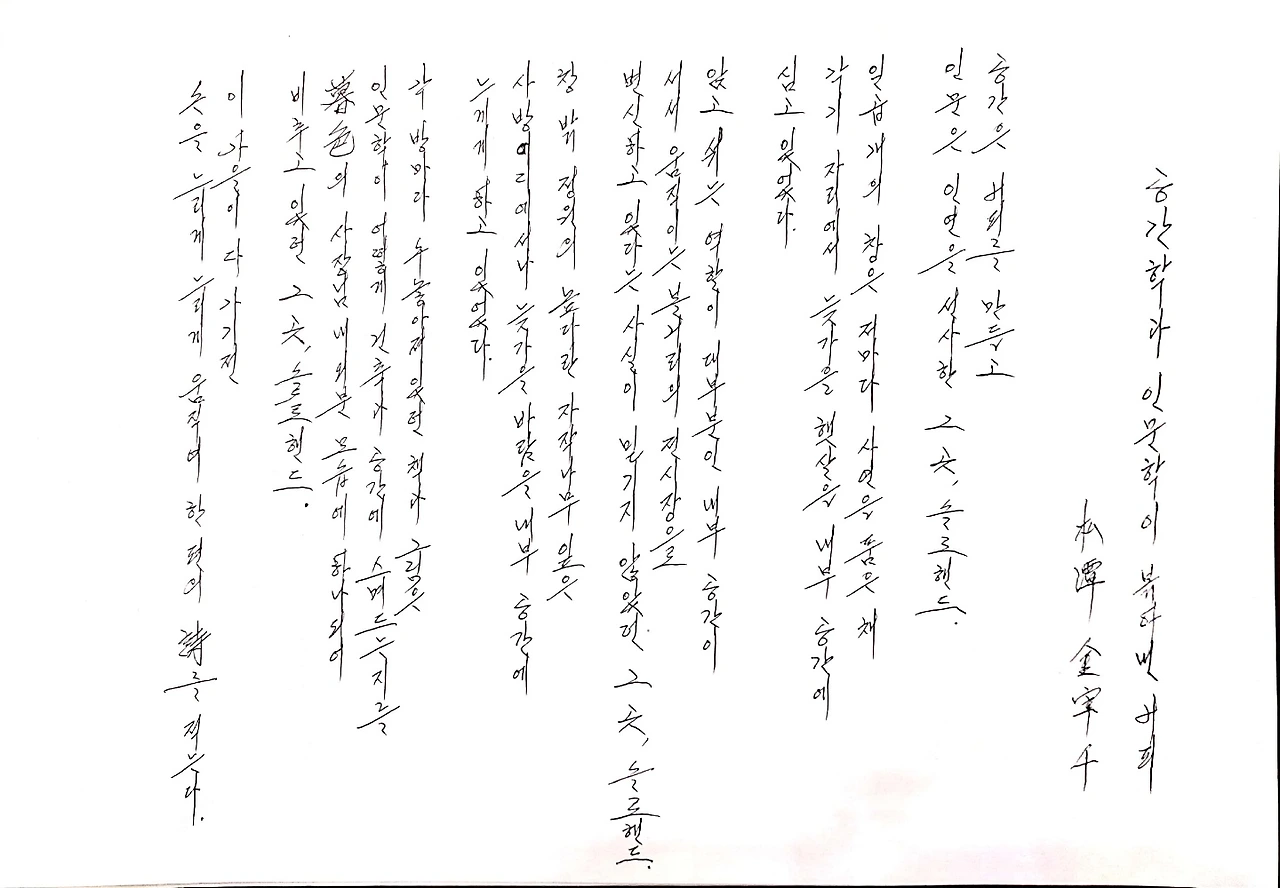 공간학과 인문학이 볶아 낸 커피
松潭 金宰千
공간은 커피를 만들고
인문은 인연을 선사한 그 곳, 슬로핸드.
일곱개의 창은 저마다 사연을 품은 채
각기 자리에서 늦가을 햇살을 내부 공간에
심고 있었다.
앉고 쉬는 역할이 대부분인 내부 공간이
서서 움직이는 볼거리의 전시장으로
변신하고 있다는 사실이 믿기지 않았던 그 곳, 슬로핸드.
창 밖 정원의 높다란 자작나무 잎은
사방 어디에서나 늦가을 바람을 내부 공간에
느끼게 하고 있었다.
각 방마다 수놓아져 있던 책과 그림은
인문학이 어떻게 건축과 공간에 스며드는지를
暮色의 사장님 내외분 모습에 하나되어
비추고 있던 그 곳, 슬로핸드.
이 가을이 다 가기 전
손을 느리게 느리게 움직여 한 편의 詩를 적는다.